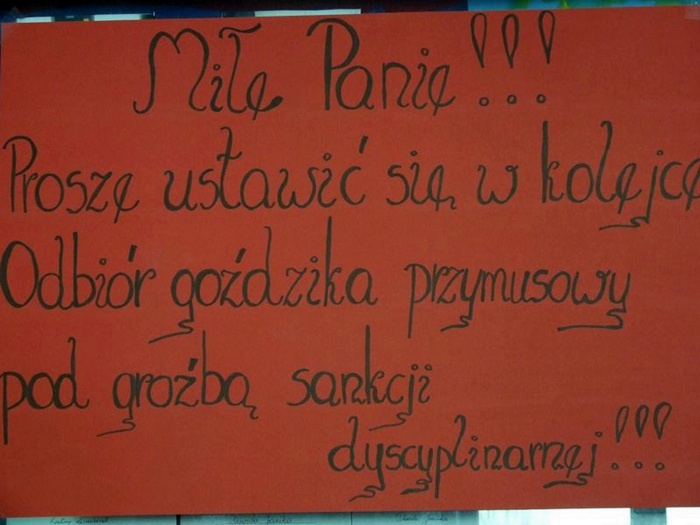 Miłe Panie!!!
Proszę ustawić się w kolejce
Odbiór goździka przymusowy
pod groźbą sankcji
dyscyplinarnej!!!